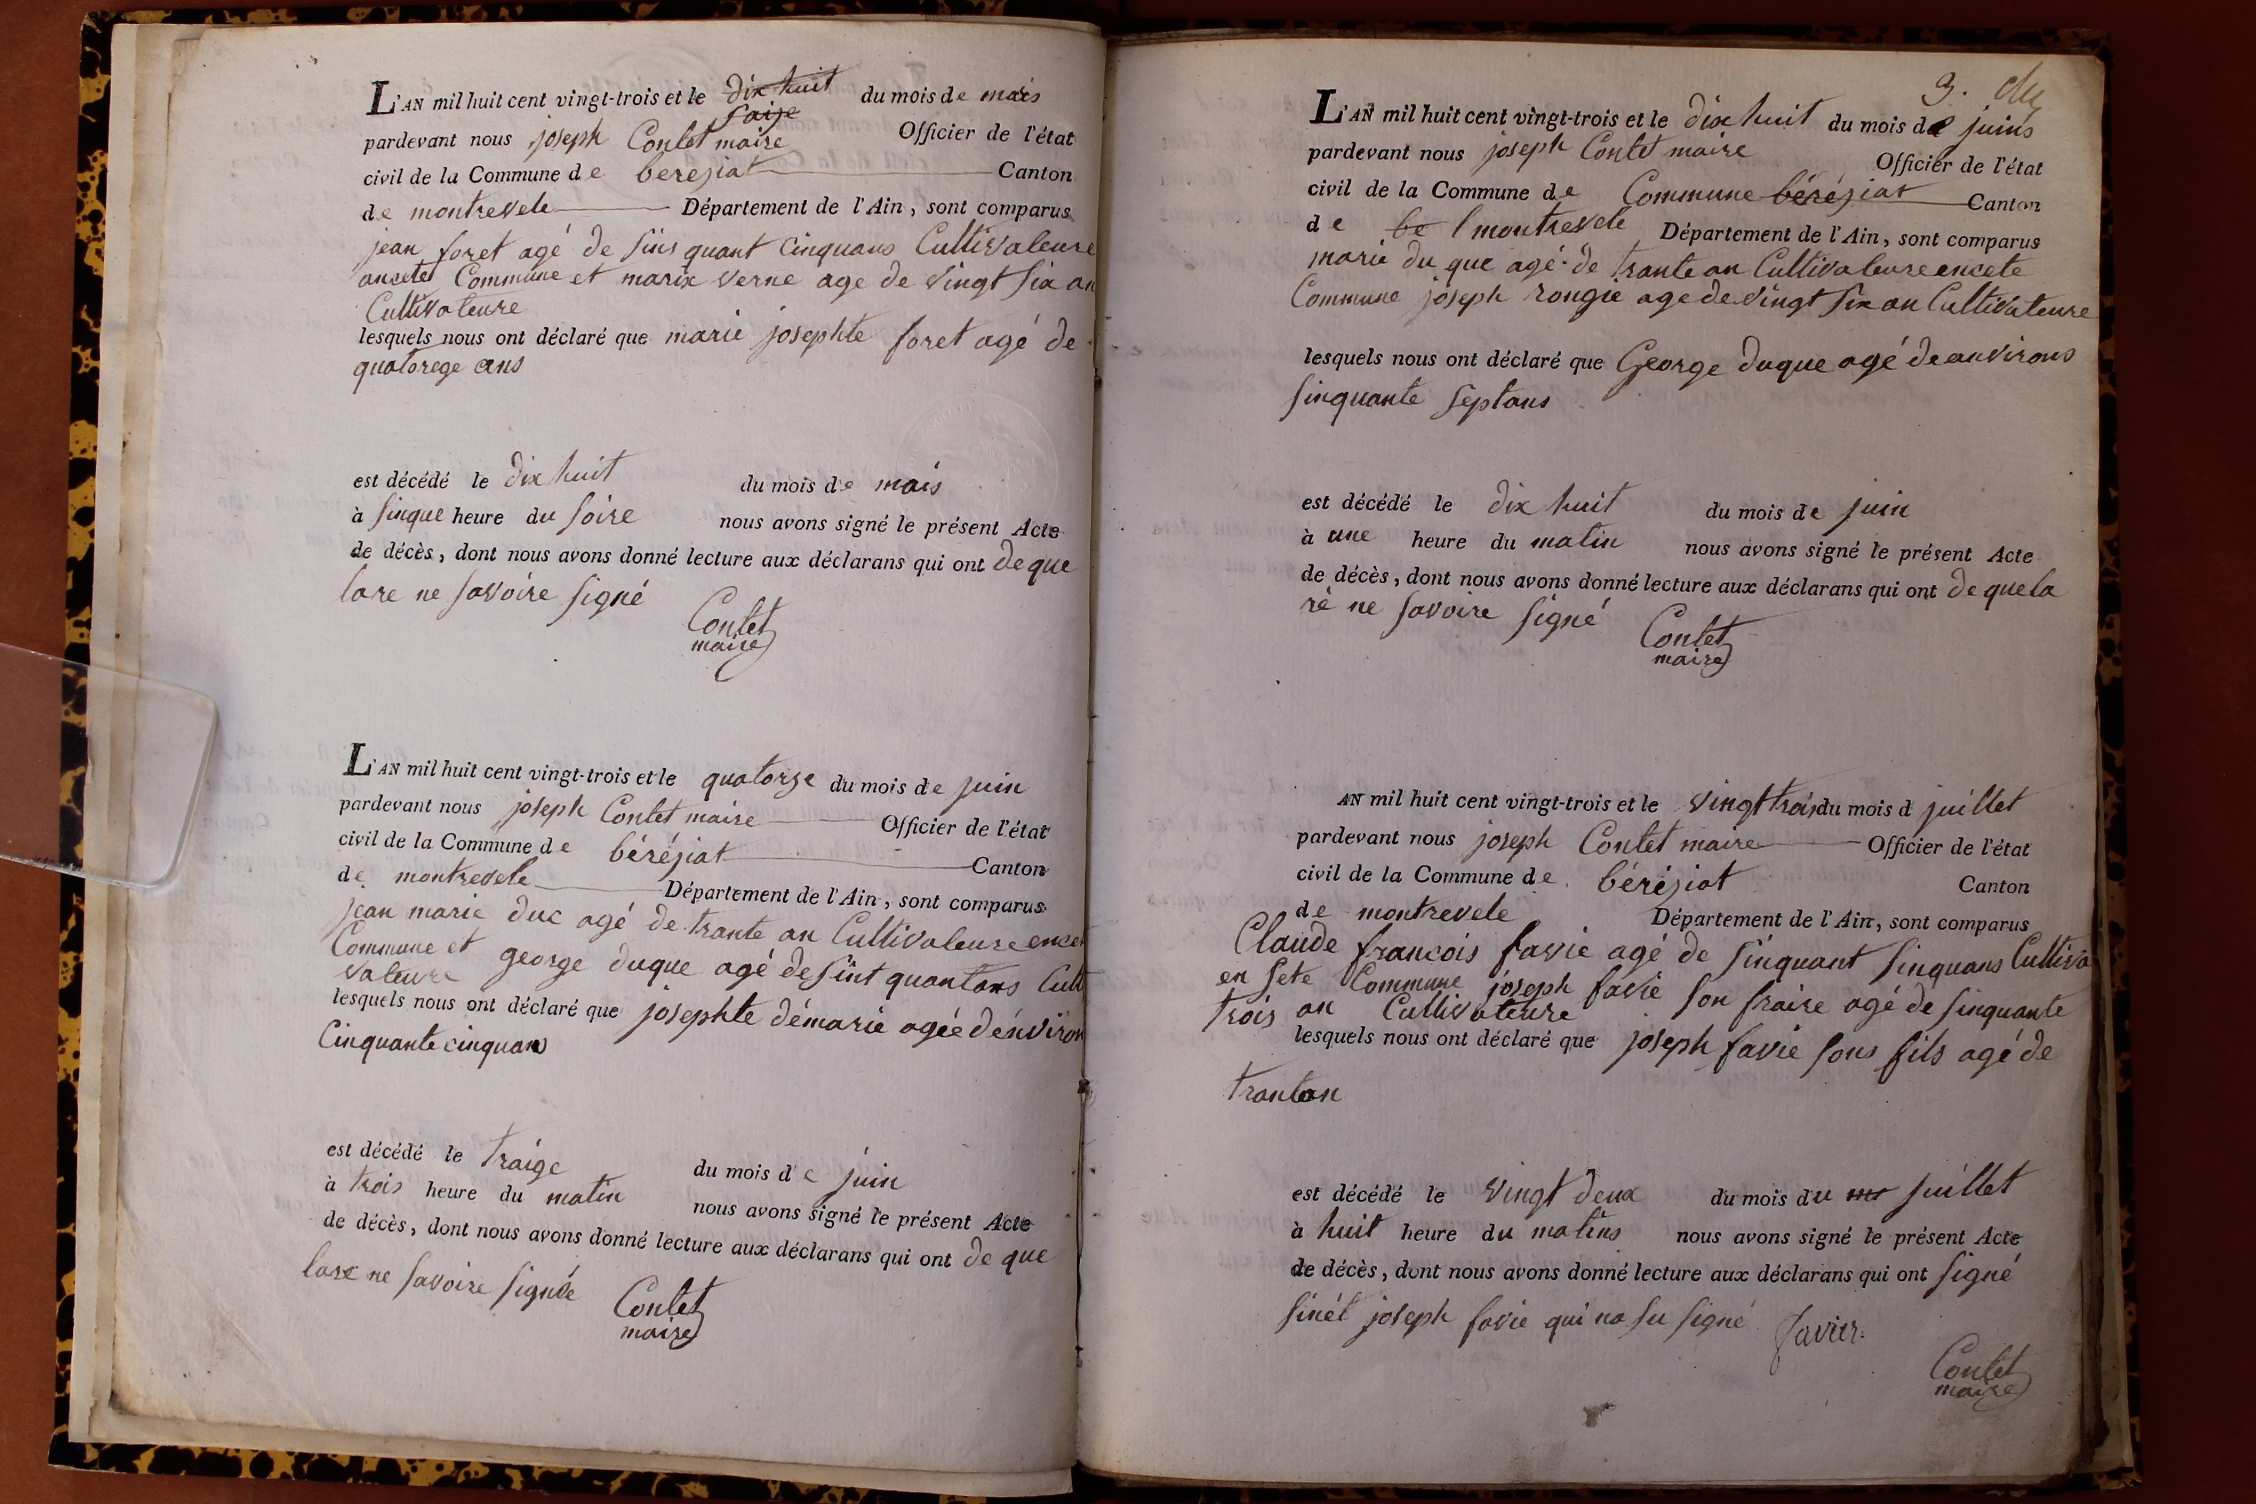 L'AN mil huit cent vingt-trois et le dix huit du mois de mars
saize
pardevant nous joseph Contet maire Officier de l'état
civil de la Commune de béréziat Canton
de montrevele Département de l'Ain, sont comparus
jean foret agé de sins quant cinquans Cultivateure
ancete Commune et marix verne age de vingt six an
Cultivateure
lesquels nous ont déclaré que marie josephte foret agé de
quatorege ans
est décédé le dix huit du mois de mais
à sinque heure du soire nous avons signé le présent Acte
de décès, dont nous avons donné lecture aux déclarans qui ont de que
lare ne savoire signé
Contet
maire
L'AN mil huit cent vingt-trois et le quatorze du mois de juin
pardevant nous joseph Contet maire Officier de l'état
civil de la Commune de béréziat Canton
de montrevele Département de l'Ain, sont comparus
jean marie duc agé de trante an Cultivateure encet
Commune et george duque agé de sint quantans Cult
vateure
lesquels nous ont déclaré que josephte démarie agée dénviron
Cinquante cinquans
est décédé le traize du mois de juin
à trois heure du matin nous avons signé le présent Acte
de décès, dont nous avons donné lecture aux déclarans qui ont de que
lare ne savoire signée
Contet
maire
3.
L'AN mil huit cent vingt-trois et le dix huit du mois de juins
pardevant nous joseph Contet maire Officier de l'état
civil de la Commune de Commune béréziat Canton
de be montrevele Département de l'Ain, sont comparus
marie du que agé de trante an Cultivateure encete
Commune joseph rongie age de vingt six an Cultivateure
lesquels nous ont déclaré que George duque agé de anvirons
sinquante septans
est décédé le dix huit du mois de juin
à une heure du matin nous avons signé le présent Acte
de décès, dont nous avons donné lecture aux déclarans qui ont de quela
ré ne savoire signé
Contet
maire
AN mil huit cent vingt-trois et le vingt trois du mois d juillet
pardevant nous joseph Contet maire Officier de l'état
civil de la Commune de béréziat Canton
de montrevele Département de l'Ain, sont comparus
Claude francois favie agé de sinquant sinquans Cultiva
en sete Commune joseph favie son fraire agé de sinquante
trois an Cultivateure
lesquels nous ont déclaré que joseph favie sons fils agé de
trantan
est décédé le vingt deux du mois du juillet
à huit heure du matins nous avons signé le présent Acte
de décès, dont nous avons donné lecture aux déclarans qui ont signé
sinét joseph favie qui na su signé
favier
Contet
maire